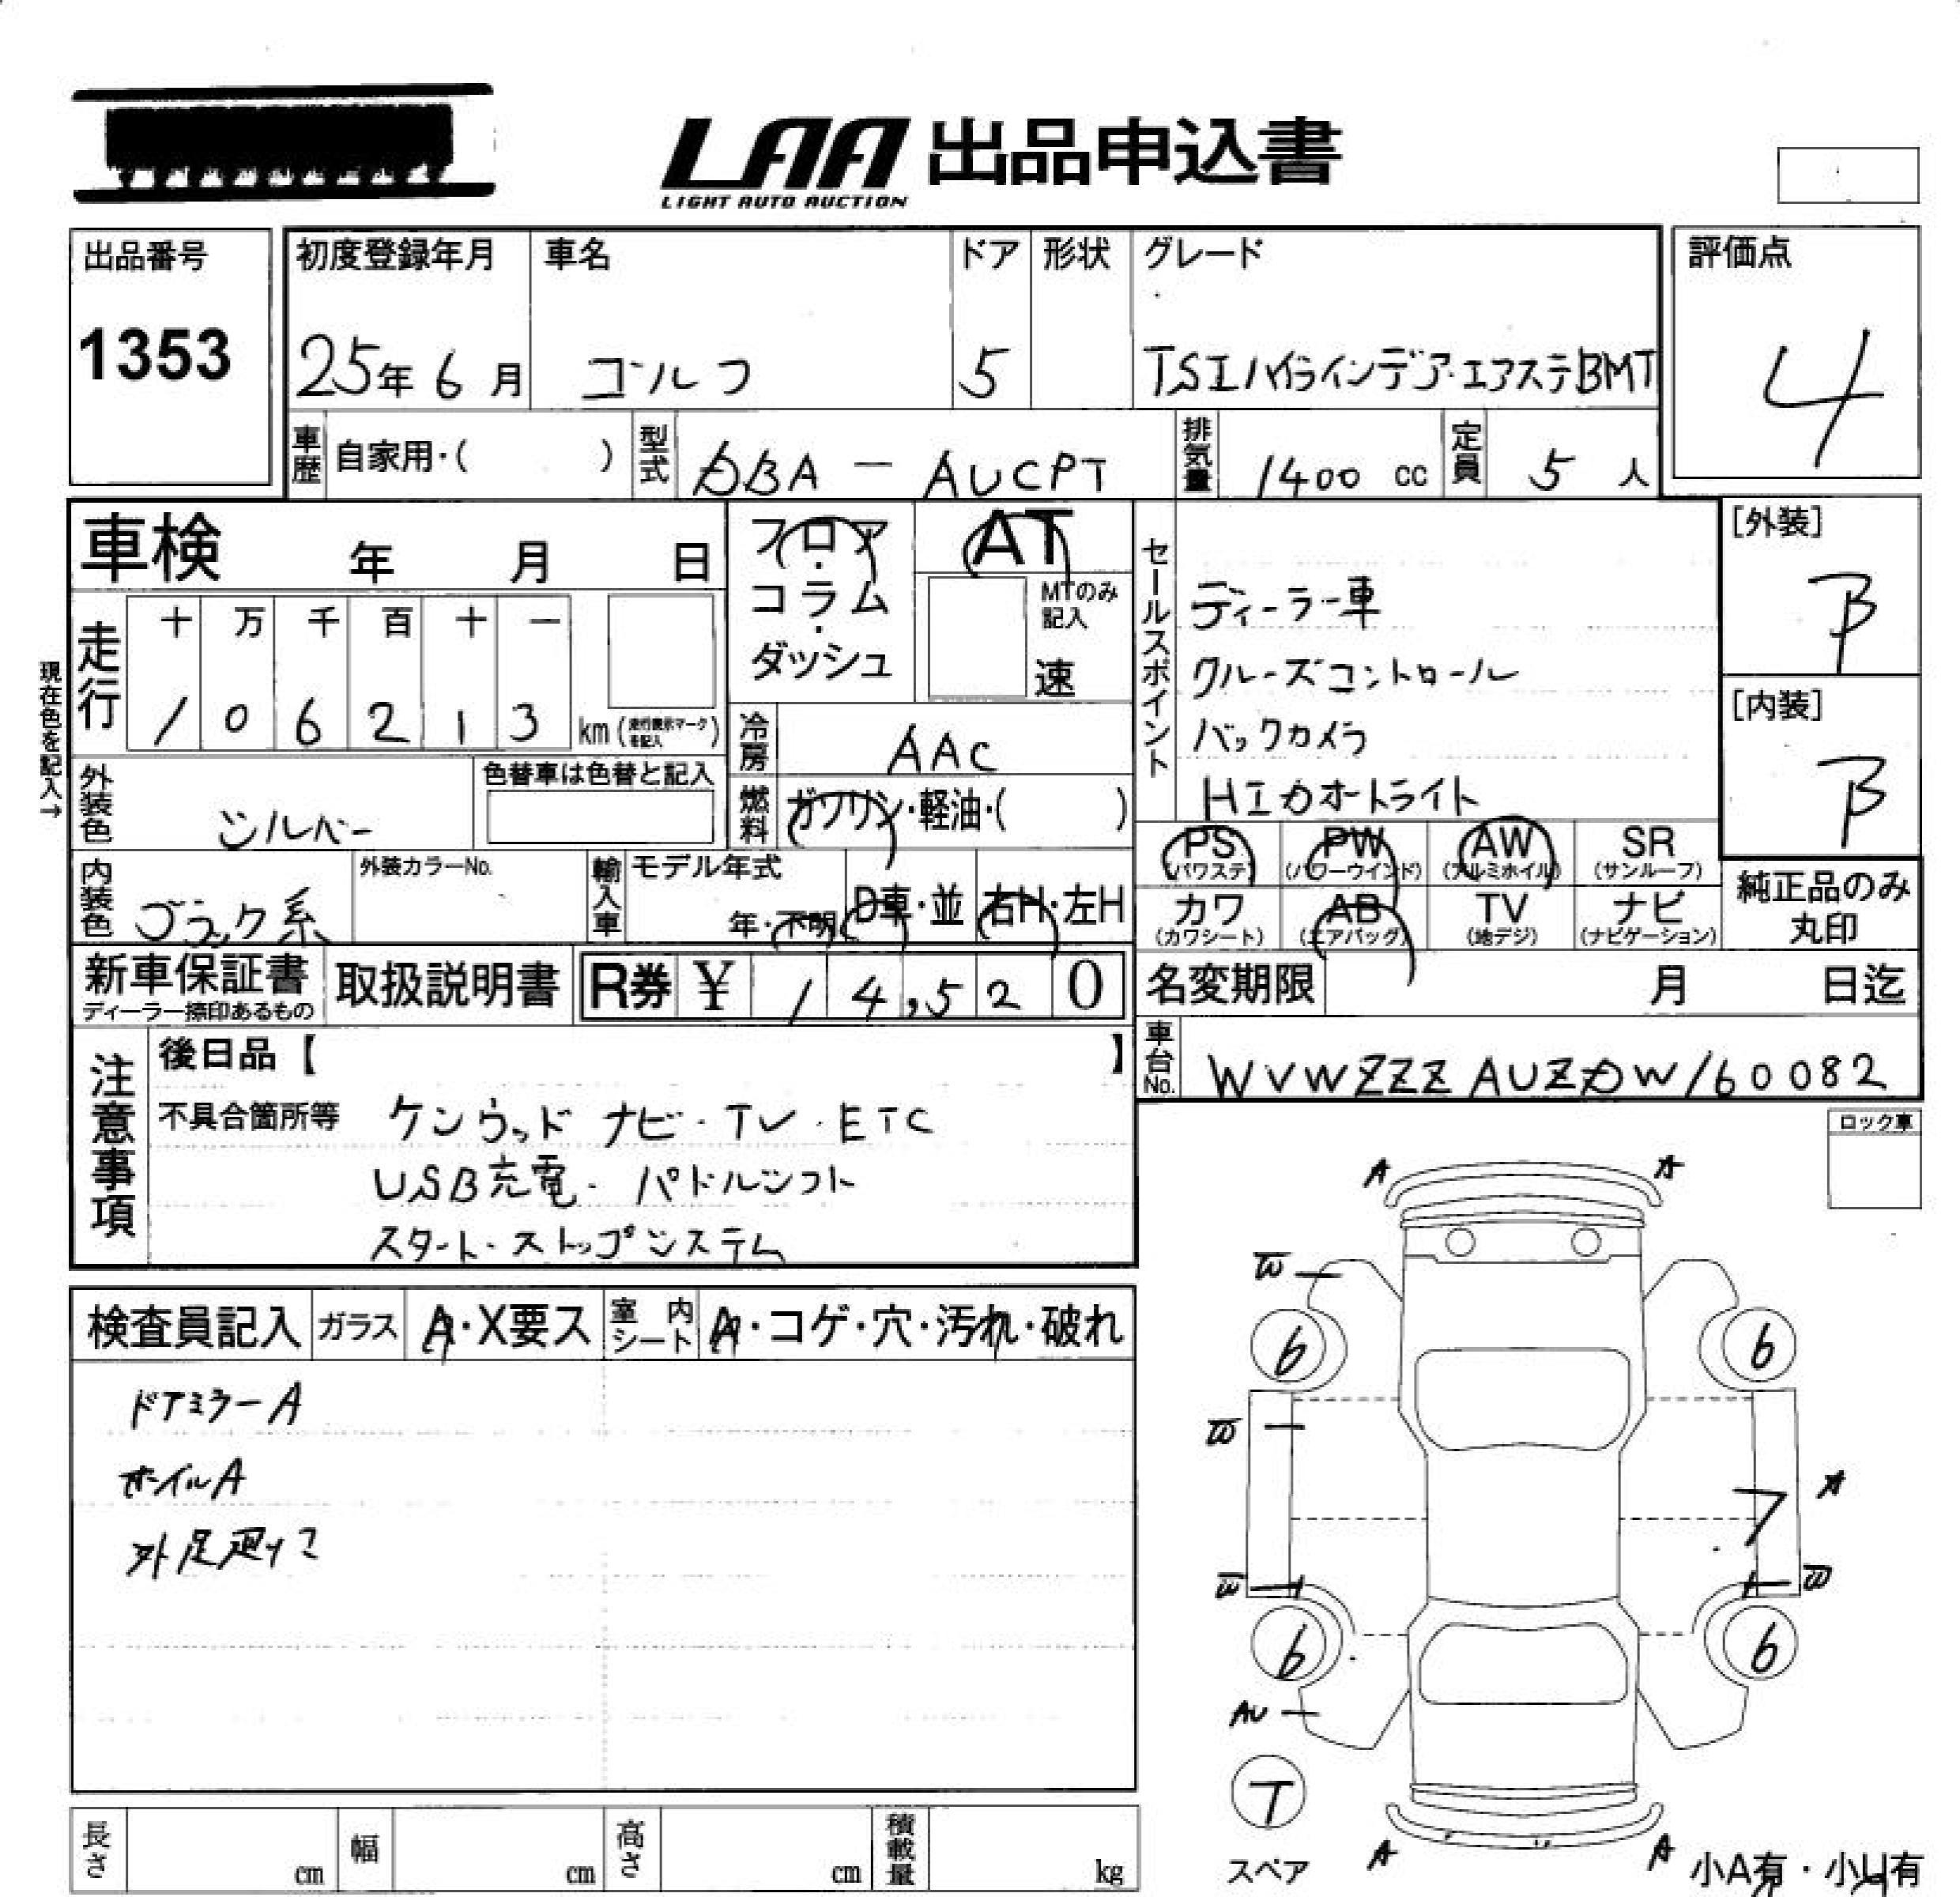 LAA 出品申込書
LIGHT AUTO AUCTION
出品番号
1353
初度登録年月
25年 6月
車名
ゴルフ
ドア
5
形状
グレード
TSIハイラインデア・エアステBMT
評価点
4
車歴 自家用・( )
型式 DBA - AUCPT
排気量 1400 cc
定員 5 人
車検 年 月 日
走行 十 万 千 百 十 一
1 0 6 2 1 3 km (走行表示マークを記入)
現在色を記入→
フロア・コラム・ダッシュ
AT
MTのみ記入
速
冷房 AAC
燃料 ガソリン・軽油・( )
外装色 シルバー
色替車は色替と記入
内装色 ブラック系
外装カラーNo.
輸入車 モデル年式 年・不明 D車・並 右H・左H
セールスポイント
ディーラー車
クルーズコントロール
バックカメラ
HIDオートライト
[外装]
B
[内装]
B
PS (パワステ) PW (パワーウインド) AW (アルミホイル) SR (サンルーフ)
カワ (カワシート) AB (エアバッグ) TV (地デジ) ナビ (ナビゲーション)
純正品のみ丸印
新車保証書
ディーラー捺印あるもの
取扱説明書
R券 ¥ 14,520
名変期限 月 日迄
車台No. WVWZZZAUZDW160082
注意事項
後日品【 】
不具合箇所等 ケンウッド ナビ・TV・ETC
USB充電・パドルシフト
スタート・ストップシステム
検査員記入 ガラス A・X要ス 室内シート A・コゲ・穴・汚れ・破れ
ドアミラーA
ホイルA
外足廻サビ
ロック車
A A
W
6 6
W
A
7
W W
6 6
AU
T
スペア
A A
小A有・小U有
長さ cm 幅 cm 高さ cm 積載量 kg